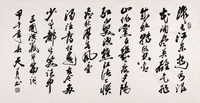 滚滚长江东逝水浪
花淘尽英雄是非
成败转头空青
山依旧在几度夕阳
红白发渔樵江
渚上惯看秋月春风
一壶浊酒喜相
逢古今多少事都付
笑谈中
三国演义开篇词
甲午年